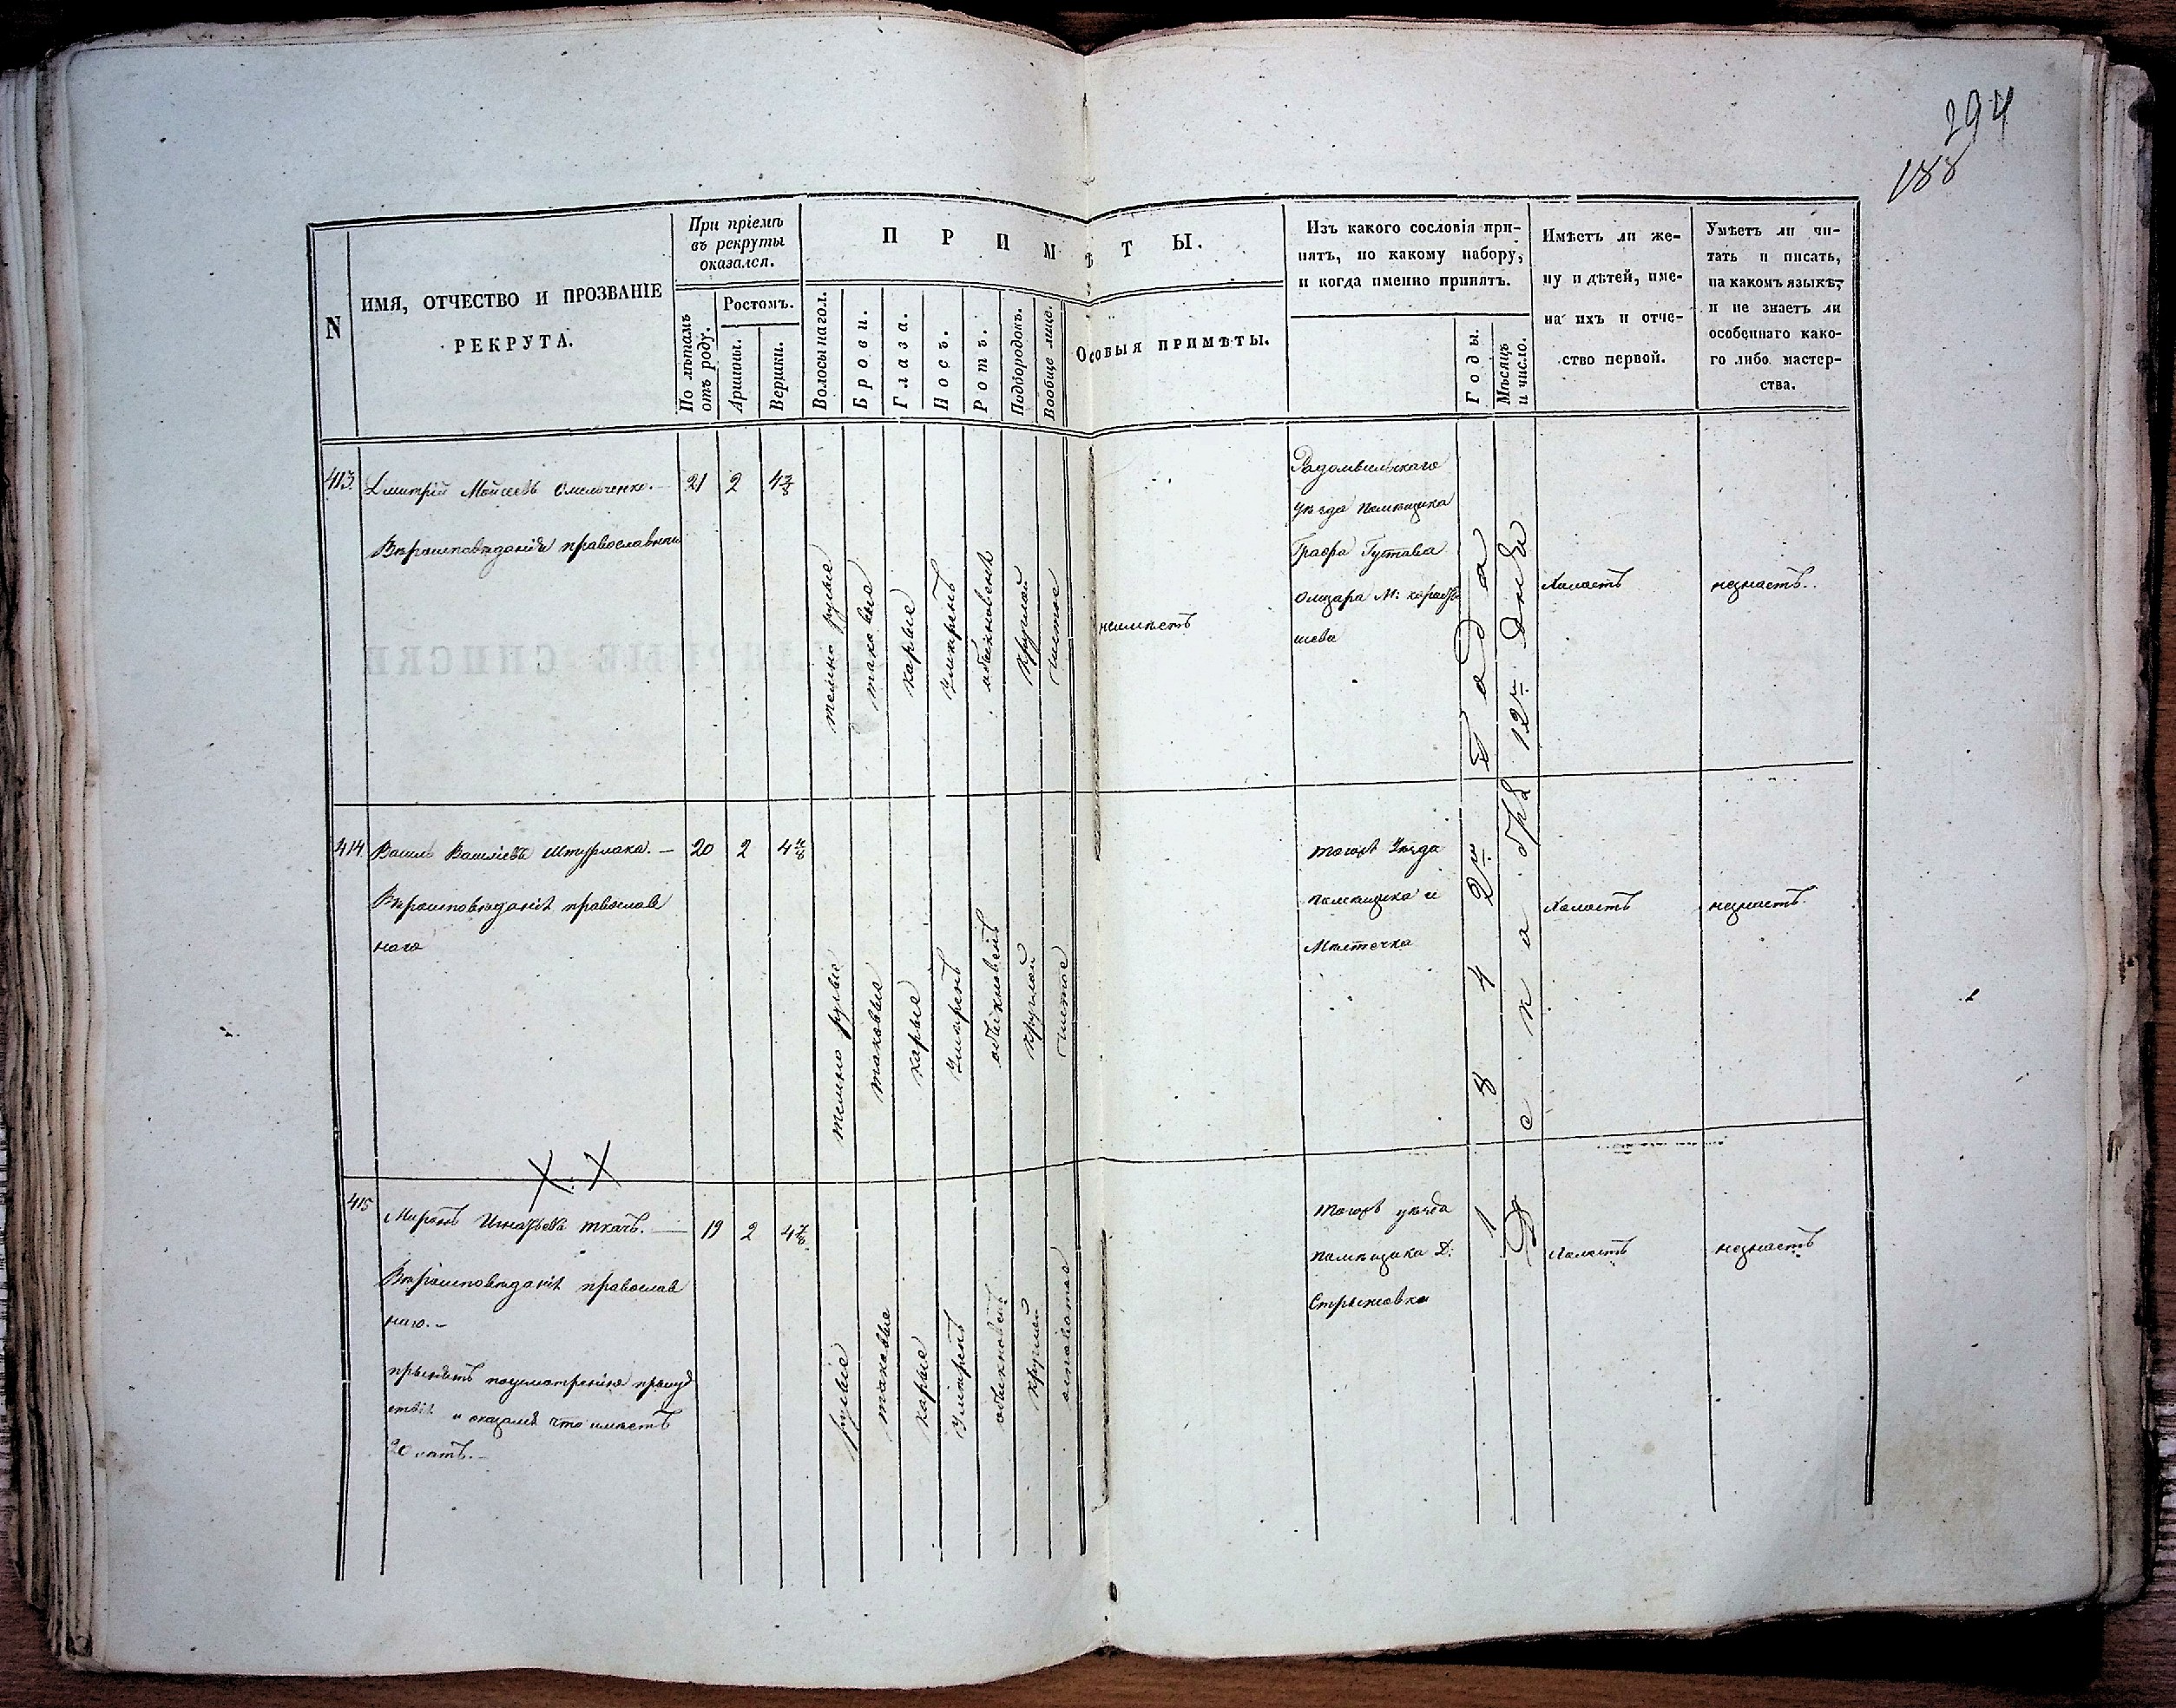 294
188
N
ИМЯ, ОТЧЕСТВО И ПРОЗВАНІЕ
РЕКРУТА.
При пріемѣ
въ рекруты
оказался.
По лѣтамъ
отъ роду.
Ростомъ.
Аршины.
Вершки.
ПРИМѢТЫ.
Волосы на гол.
Брови.
Глаза.
Носъ.
Ротъ.
Подбородокъ.
Вообще лице.
Особыя примѣты.
Изъ какого сословія при-
нятъ, по какому набору,
и когда именно принятъ.
Годы.
Мѣсяцъ
и число.
Имѣетъ ли же-
ну и дѣтей, име-
на ихъ и отче-
ство первой.
Умѣетъ ли чи-
тать и писать,
на какомъ языкѣ,
и не знаетъ ли
особеннаго како-
го либо мастер-
ства.
413.
Дмитрій Мойсеевъ Омельченко.
Вѣроисповѣданія православнаго
21
2
темно русые
таковые
карые
Умѣренъ
обыкновенъ
круглой
чистое
неимѣетъ
Радомысльскаго
уѣзда помѣщика
Графа Густава
Олизара М:
Холостъ
незнаетъ.
1842го Года
Декабря 12го дня
414.
Василь Васильевъ
Вѣроисповѣданія православ
наго
20
2
темно русые
таковые
карые
Умѣренъ
обыкновенъ
круглой
чистое
тогожъ Уѣзда
помѣщика и
Мѣстечка
Холостъ
незнаетъ.
Х. Х
415
Миронъ Игнатьевъ Ткачъ.
Вѣроисповѣданія православ
наго.
принятъ поусмотренію присуд
ствія и оказалсѣ что имѣетъ
20 летъ.
19
2
4 7/8
русые
таковые
карые
Умѣренъ
обыкновенъ
круглой
осповатое
тогожъ уѣзда
помѣщика Д:
Стрыжовка
Холостъ
незнаетъ